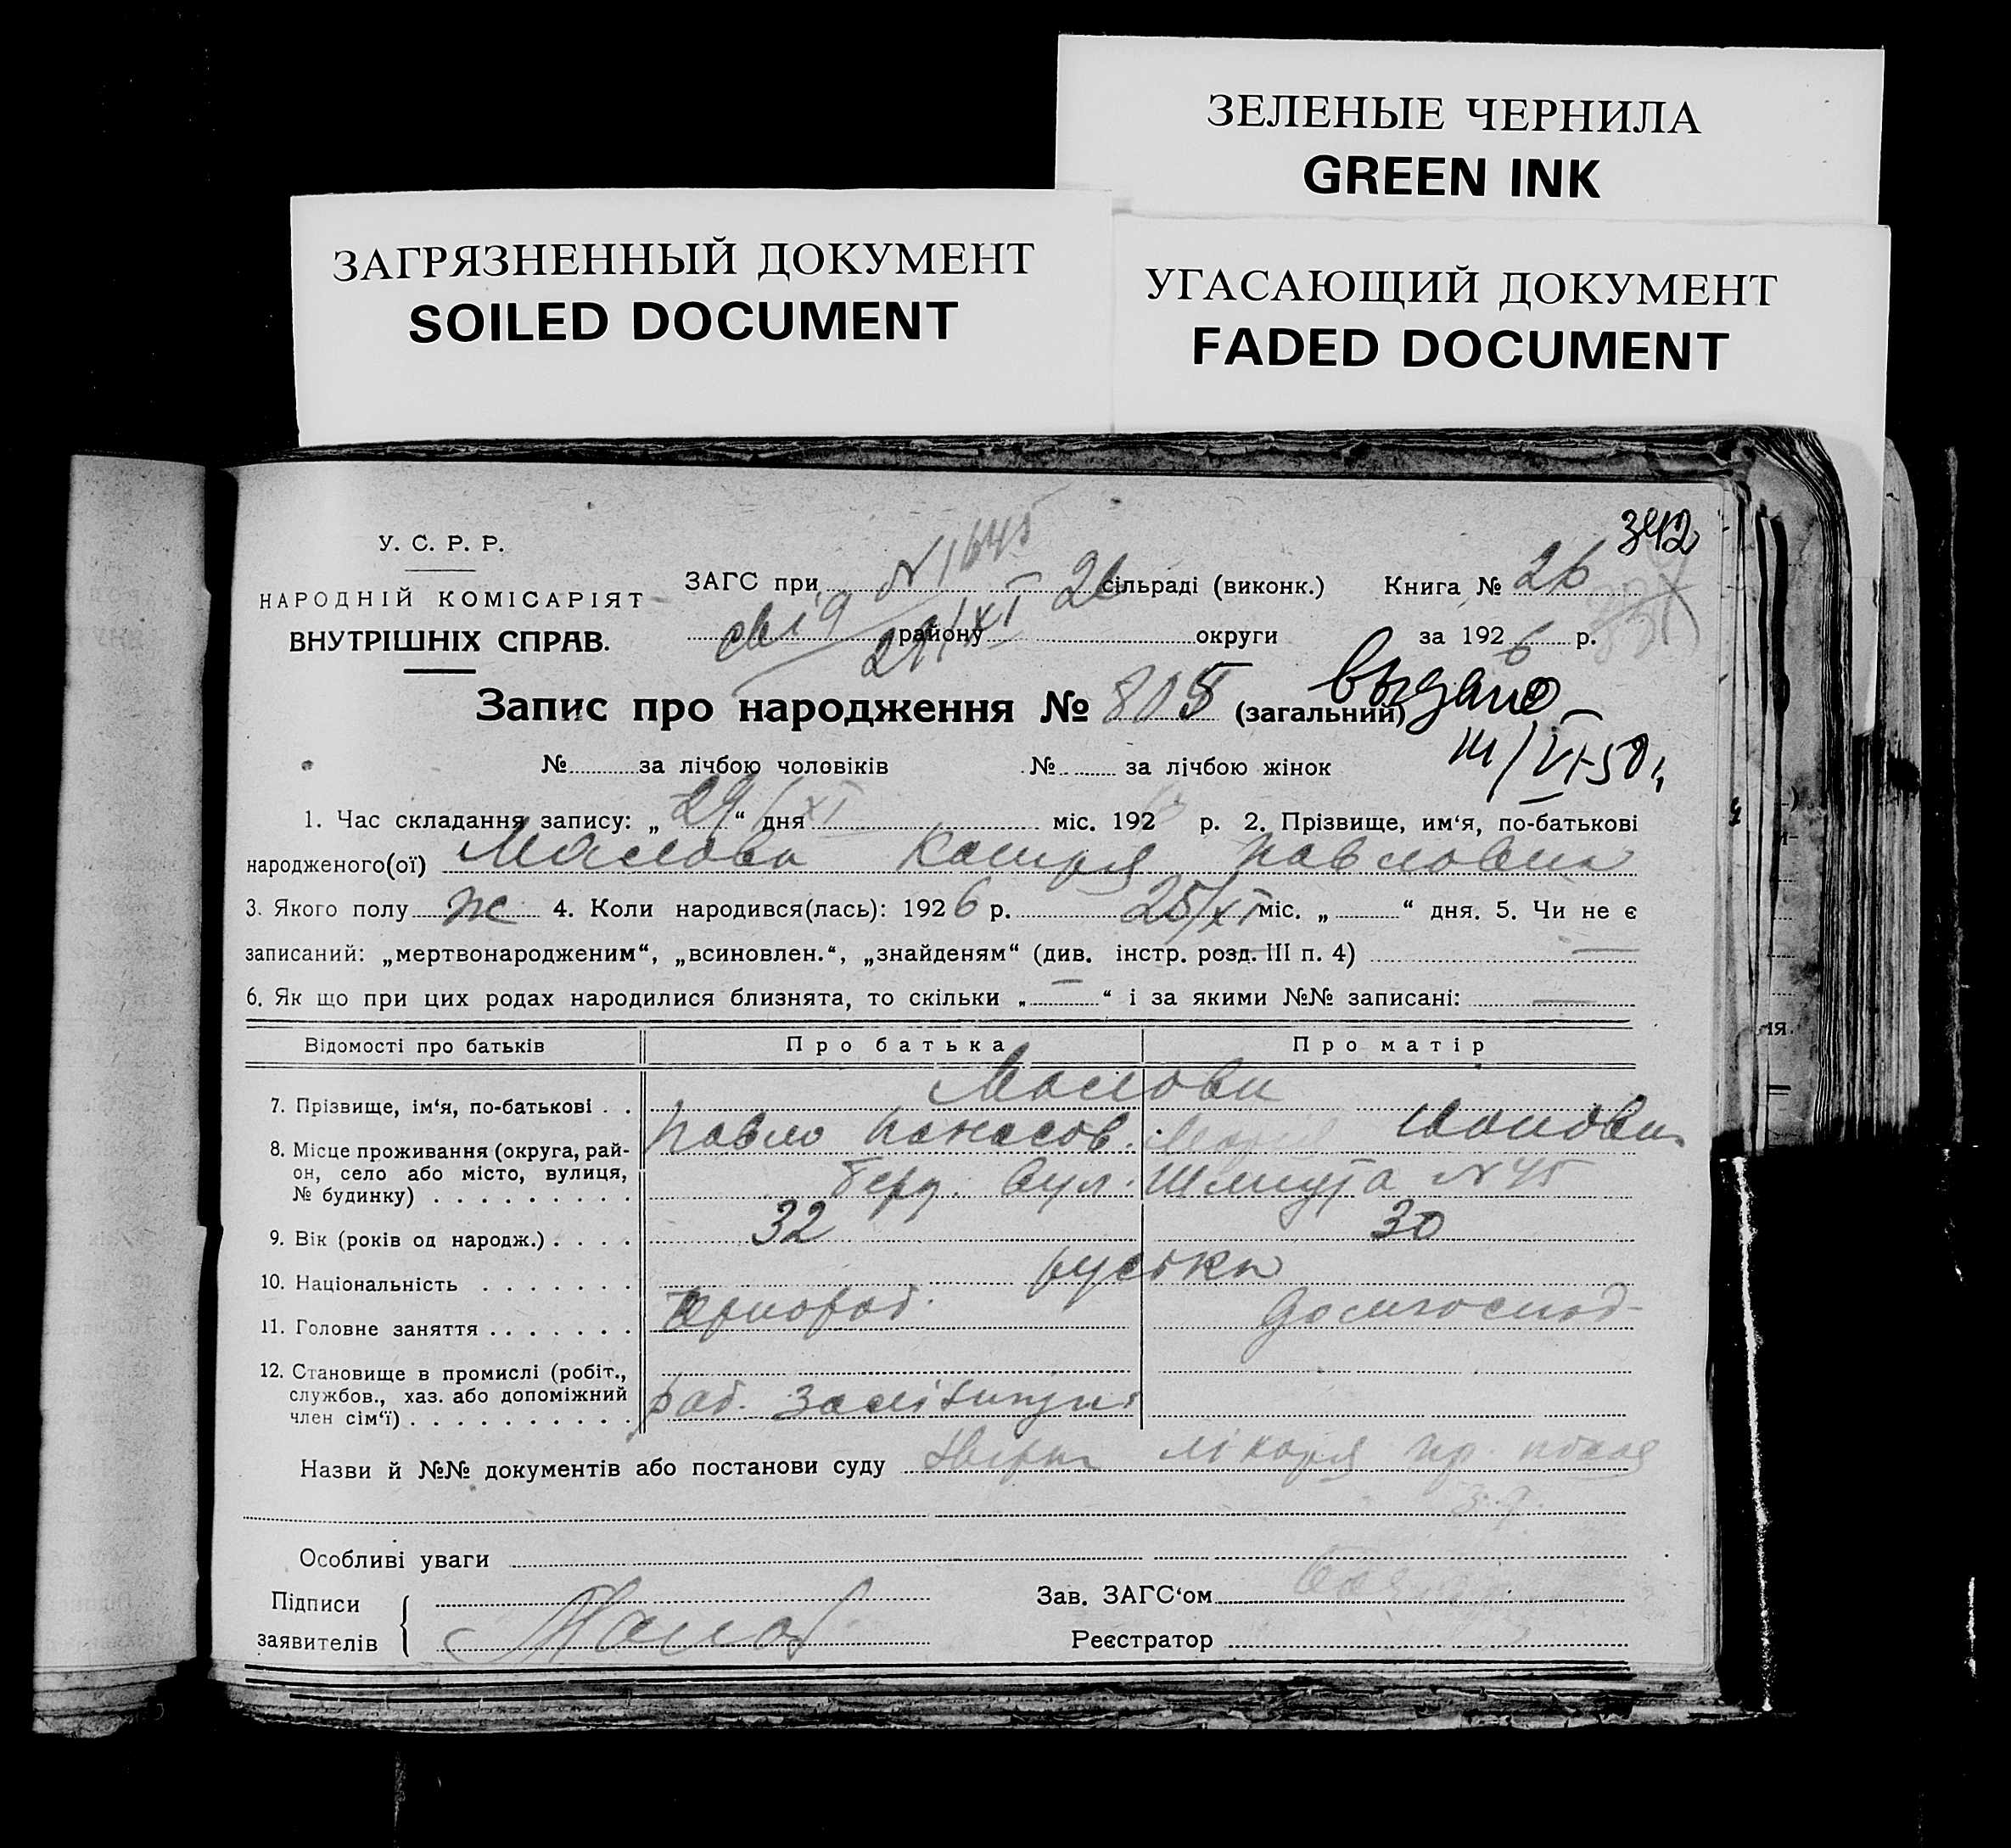 ЗЕЛЕНЫЕ ЧЕРНИЛА
GREEN INK
ЗАГРЯЗНЕННЫЙ ДОКУМЕНТ
SOILED DOCUMENT
УГАСАЮЩИЙ ДОКУМЕНТ
FADED DOCUMENT
342
У. С. Р. Р.
НАРОДНІЙ КОМІСАРІЯТ
ВНУТРІШНІХ СПРАВ.
N 1645
ЗАГС при 26 сільраді (виконк.) Книга № 26
29/XI району округи за 1926 р.
Запис про народження № 805 (загальний)
выдано
III/VI-50 г.
№ за лічбою чоловіків № за лічбою жінок
1. Час складання запису: „29“ дня XI міс. 1926 р. 2. Прізвище, им‘я, по-батькові
народженого(ої) Маслова Катря Павловна
3. Якого полу ж 4. Коли народився(лась): 1926 р. 25/XI міс. „ “ дня. 5. Чи не є
записаний: „мертвонародженим“, „всиновлен.“, „знайденям“ (див. інстр. розд. III п. 4) —
6. Як що при цих родах народилися близнята, то скільки „—“ і за якими №№ записані: —
Відомості про батьків Про батька Про матір
Маслови
7. Прізвище, ім‘я, по-батькові . . Павло Панасов. Марія
8. Місце проживання (округа, рай-
он, село або місто, вулиця, вул. Шмидта N 45
№ будинку) . . . . . . . . .
9. Вік (років од народж.) . . . . 32 30
10. Національність . . . . . . . руські
11. Головне заняття . . . . . . . Чорнороб. домгоспод-
12. Становище в промислі (робіт.,
службов., хаз. або допоміжний
член сім‘ї) . . . . . . . . . . раб.
Назви й №№ документів або постанови суду лікаря пр
Особливі уваги
Підписи
заявителів Маслов
Зав. ЗАГС‘ом
Реєстратор